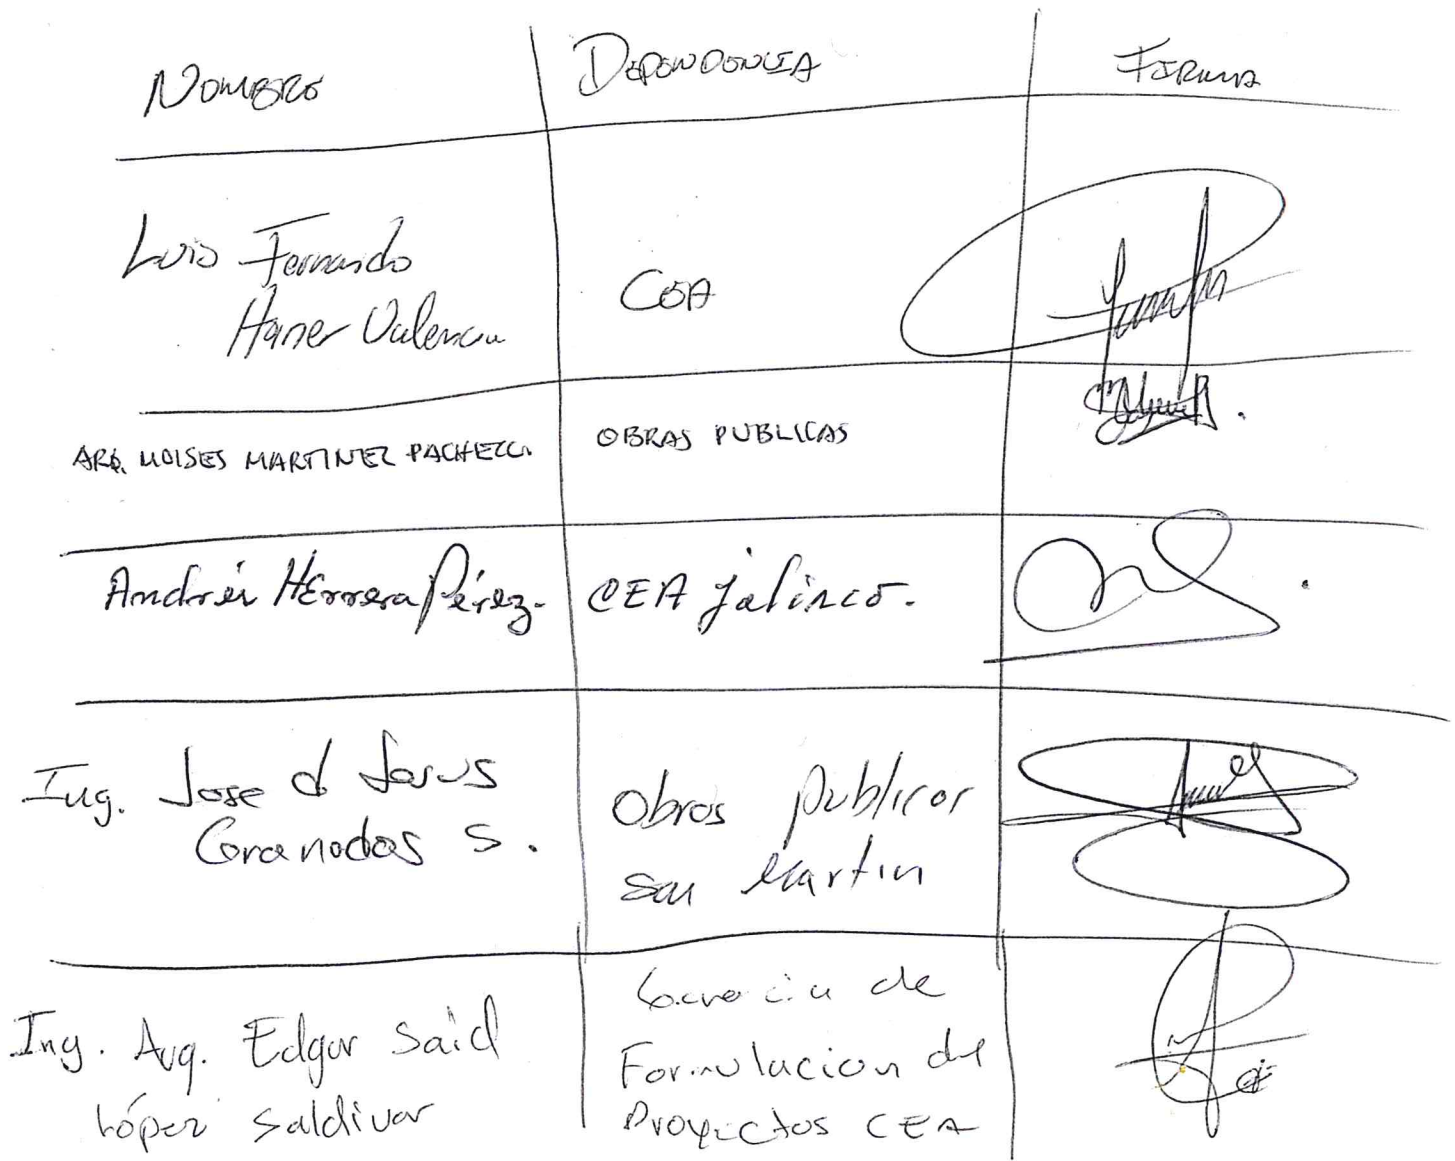 NOMBRE DEPENDENCIA FIRMA
Luis Fernando
Haner Valencia
CEA
ARQ. MOISES MARTINEZ PACHECO. OBRAS PUBLICAS
Andrés Herrera Pérez. CEA Jalisco.
Ing. Jose d Jesus
Granados S.
Obras Publicas
San Martin
Ing. Arq. Edgar Said
López Saldivar
Gerencia de
Formulacion de
Proyectos CEA